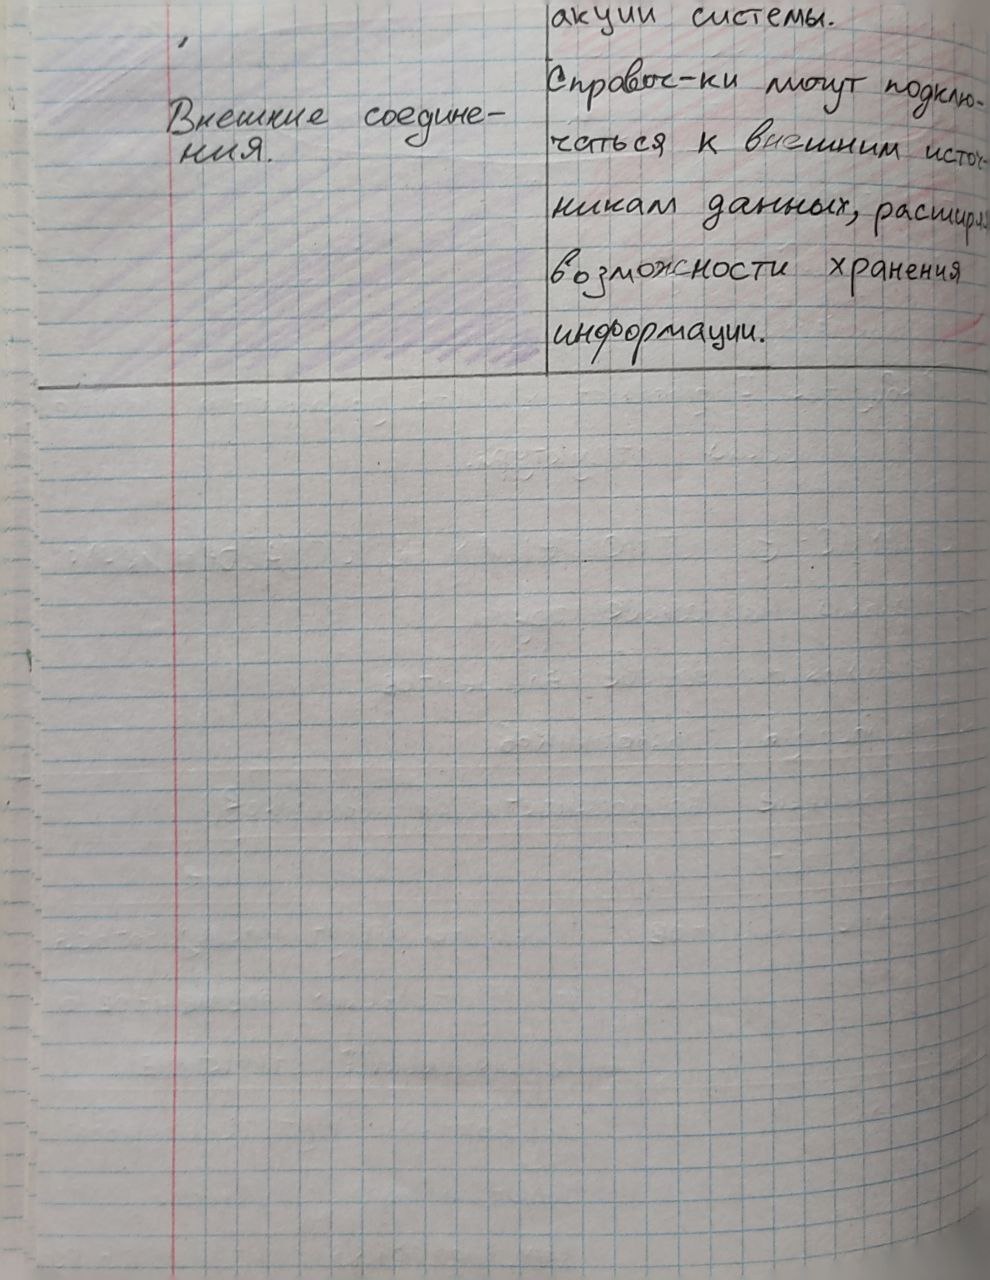 акции системы.
Внешние соедине-
ния.
Справоч-ки могут подклю-
чаться к внешним источ-
никам данных, расширяя
возможности хранения
информации.